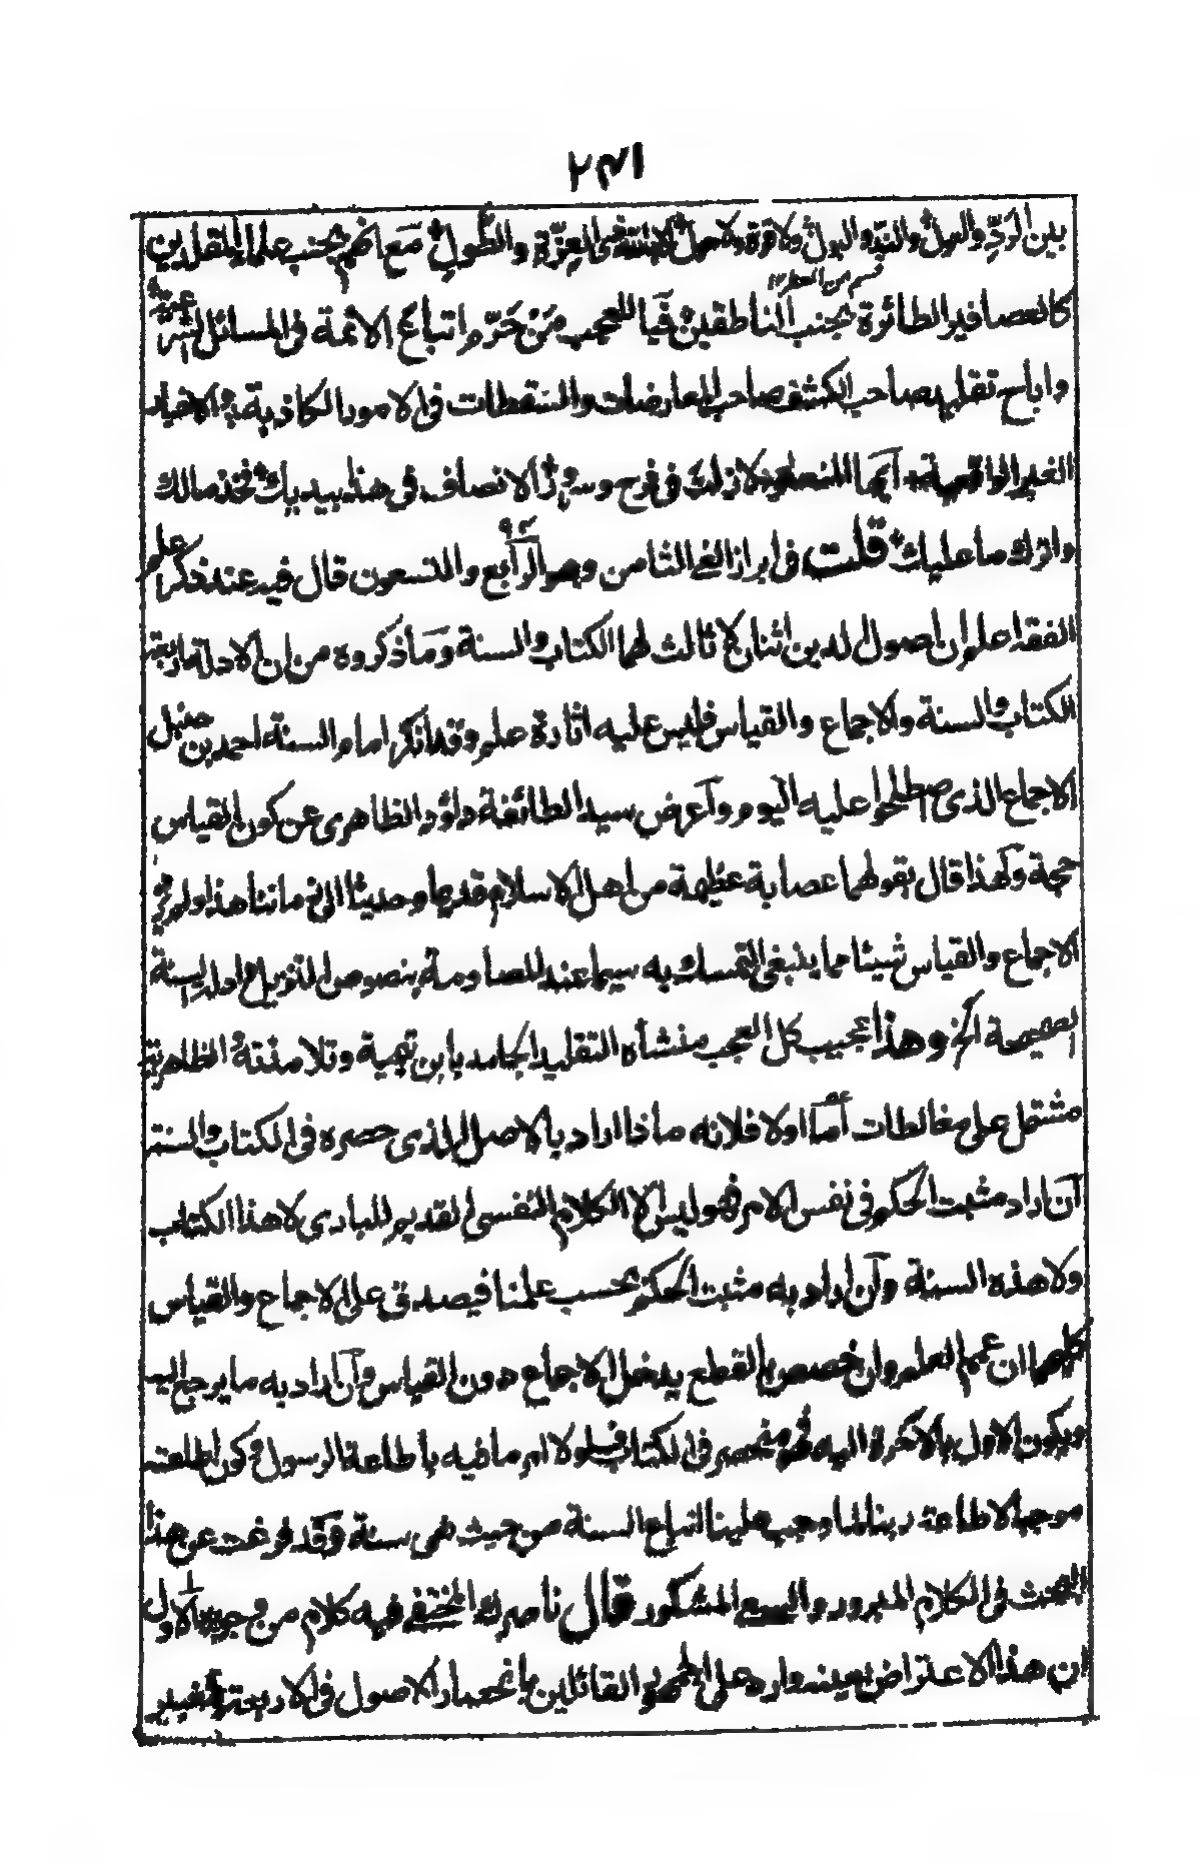 ٢٣١
بين الردّ والقبول والتيه والبول ولا قوة ولا حول الا لله ذى العِزّة والطَّول مَع انهم بجنب علماء المقلدين
قسم من الصقر ١٢
كالعصافير الطائرة بجنب الناطقين فيا للعجب مَنْ حَرّم اتباع الائمة فى المسائل الشرعية
واباح تقليد صاحب الكشف صاحب المعارضات والسقطات فى الامور الكاذبة والاخبار
الغير الواقعية ايها المنصور لا زلت فى فرح وسرور الانصاف فى هذا بيديك فخذ مالك
واترك ما عليك قلت فى ابراز الغى الثامن وهو الرابع والتسعون قال فيه عند ذكر علم
٩٤
الفقه اعلم ان اصول الدين اثنان لا ثالث لهما الكتاب والسنة وما ذكروه من ان الادلة اربعة
الكتاب والسنة والاجماع والقياس فليس عليه اثارة علم وقد انكر امام السنة احمد بن حنبل
الاجماع الذى اصطلحوا عليه اليوم واعرض سيد الطائفة داؤد الظاهرى عن كون القياس
حجة ولهذا قال بقولهما عصابة عظيمة من اهل الاسلام قديما وحديثا الى زماننا هذا ولم يروا
الاجماع والقياس شيئا مما ينبغى التمسك به سيما عند المصادمة بنصوص التنزيل وادلة السنة
الصحيحة الخ وهذا عجيب كل العجب منشأه التقليد الجامد بابن تيمية وتلامذته الظاهرية
مشتمل على مغالطات اما اولا فلانه ماذا اراد بالاصل الذى حصره فى الكتاب والسنة
ان اراد مثبت الحكم فى نفس الامر فهو ليس الا الكلام النفسى القديم للبارى لا هذا الكتاب
ولا هذه السنة وان اراد به مثبت الحكم بحسب علمنا فيصدق على الاجماع والقياس
كليهما ان عمم العلم وان خصص بالقطع يدخل الاجماع دون القياس وان اراد به ما يرجع اليه
ويكون الاول بالآخرة اليه فهو منحصر فى الكتاب فلولا امر ما فيه باطاعة الرسول وكون اطاعته
موجبا لاطاعة ربنا لما وجب علينا اتباع السنة من حيث هى سنة وقد فرغت عن هذا
البحث فى الكلام المبرور والسعى المشكور قال ناصرك المختفى فيه كلام من وجوه الاول
ان هذا الاعتراض بعينه وارد على الجمهور القائلين بانحصار الاصول فى الاربعة